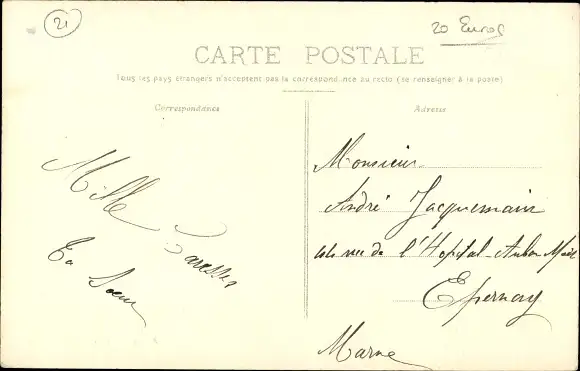 21
20 Euros
CARTE POSTALE
Tous les pays étrangers n'acceptent pas la correspondance au recto (se renseigner à la poste)
Correspondance
Adresse
Mille Caresses
Ta Soeur
Monsieur
André Jacquemain
rue de l'Hopital-Auban Moët
Epernay
Marne